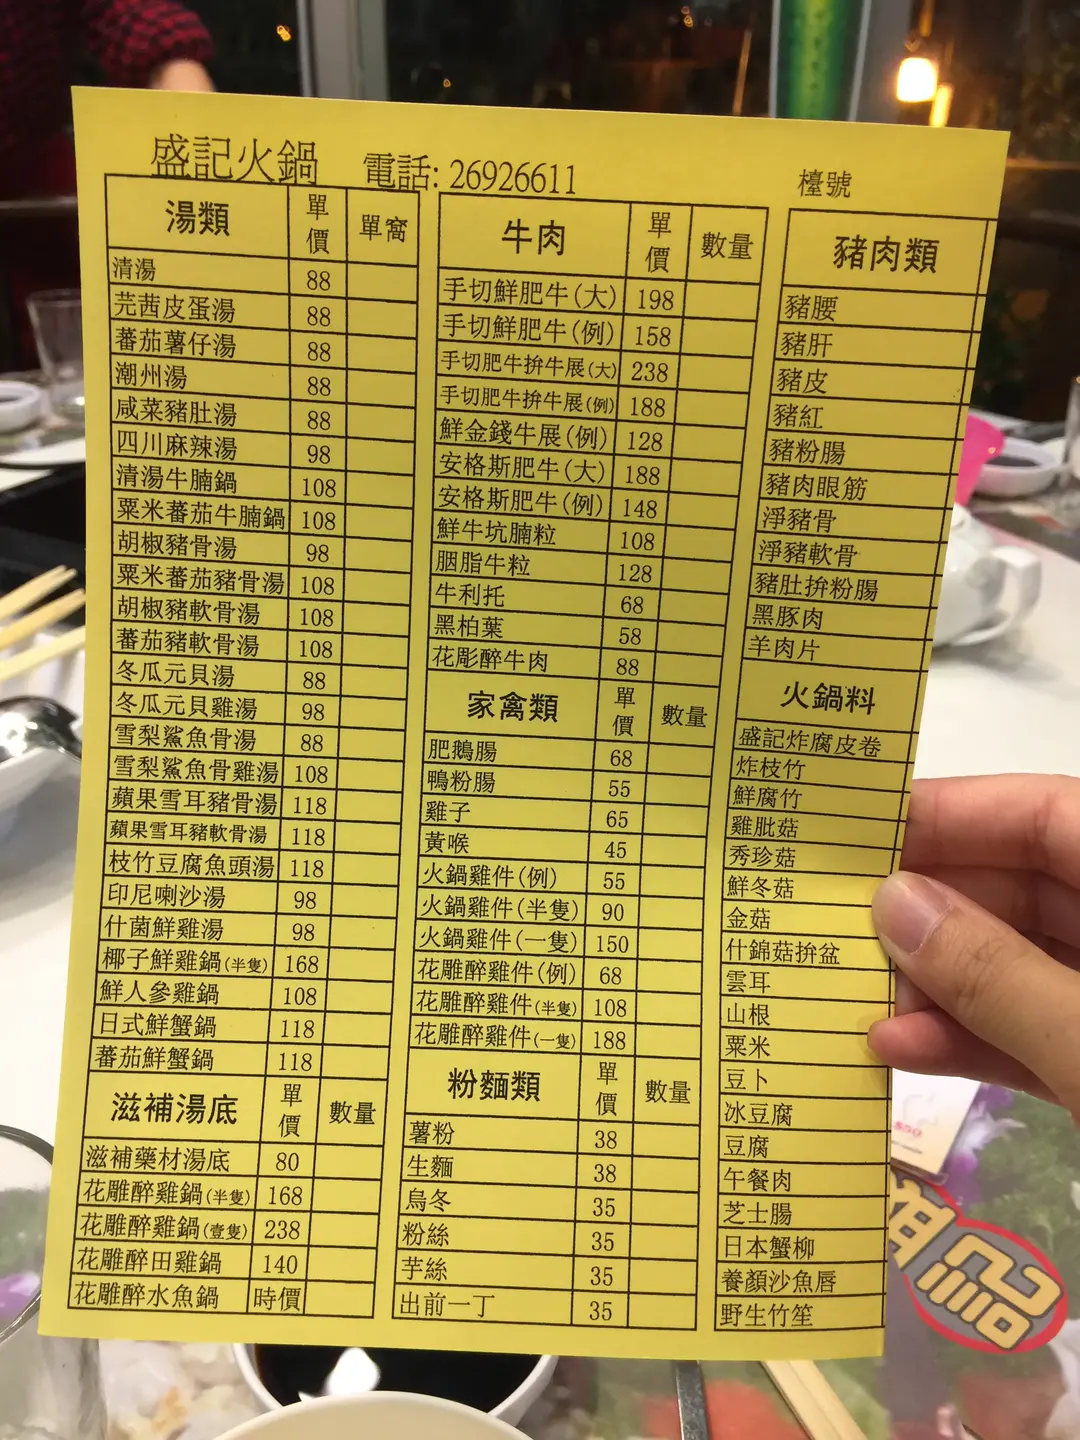 盛記火鍋 電話: 26926611 檯號
湯類 單價 單窩
清湯 88
芫茜皮蛋湯 88
蕃茄薯仔湯 88
潮州湯 88
咸菜豬肚湯 88
四川麻辣湯 98
清湯牛腩鍋 108
粟米蕃茄牛腩鍋 108
胡椒豬骨湯 98
粟米蕃茄豬骨湯 108
胡椒豬軟骨湯 108
蕃茄豬軟骨湯 108
冬瓜元貝湯 88
冬瓜元貝雞湯 98
雪梨鯊魚骨湯 88
雪梨鯊魚骨雞湯 108
蘋果雪耳豬骨湯 118
蘋果雪耳豬軟骨湯 118
枝竹豆腐魚頭湯 118
印尼喇沙湯 98
什菌鮮雞湯 98
椰子鮮雞鍋(半隻) 168
鮮人參雞鍋 108
日式鮮蟹鍋 118
蕃茄鮮蟹鍋 118
滋補湯底 單價 數量
滋補藥材湯底 80
花雕醉雞鍋(半隻) 168
花雕醉雞鍋(壹隻) 238
花雕醉田雞鍋 140
花雕醉水魚鍋 時價
牛肉 單價 數量
手切鮮肥牛(大) 198
手切鮮肥牛(例) 158
手切肥牛拚牛展(大) 238
手切肥牛拚牛展(例) 188
鮮金錢牛展(例) 128
安格斯肥牛(大) 188
安格斯肥牛(例) 148
鮮牛坑腩粒 108
胭脂牛粒 128
牛利托 68
黑柏葉 58
花彫醉牛肉 88
家禽類 單價 數量
肥鵝腸 68
鴨粉腸 55
雞子 65
黃喉 45
火鍋雞件(例) 55
火鍋雞件(半隻) 90
火鍋雞件(一隻) 150
花雕醉雞件(例) 68
花雕醉雞件(半隻) 108
花雕醉雞件(一隻) 188
粉麵類 單價 數量
薯粉 38
生麵 38
烏冬 35
粉絲 35
芋絲 35
出前一丁 35
豬肉類
豬腰
豬肝
豬皮
豬紅
豬粉腸
豬肉眼筋
淨豬骨
淨豬軟骨
豬肚拚粉腸
黑豚肉
羊肉片
火鍋料
盛記炸腐皮卷
炸枝竹
鮮腐竹
雞肶菇
秀珍菇
鮮冬菇
金菇
什錦菇拚盆
雲耳
山根
粟米
豆卜
冰豆腐
豆腐
午餐肉
芝士腸
日本蟹柳
養顏沙魚唇
野生竹笙
$50